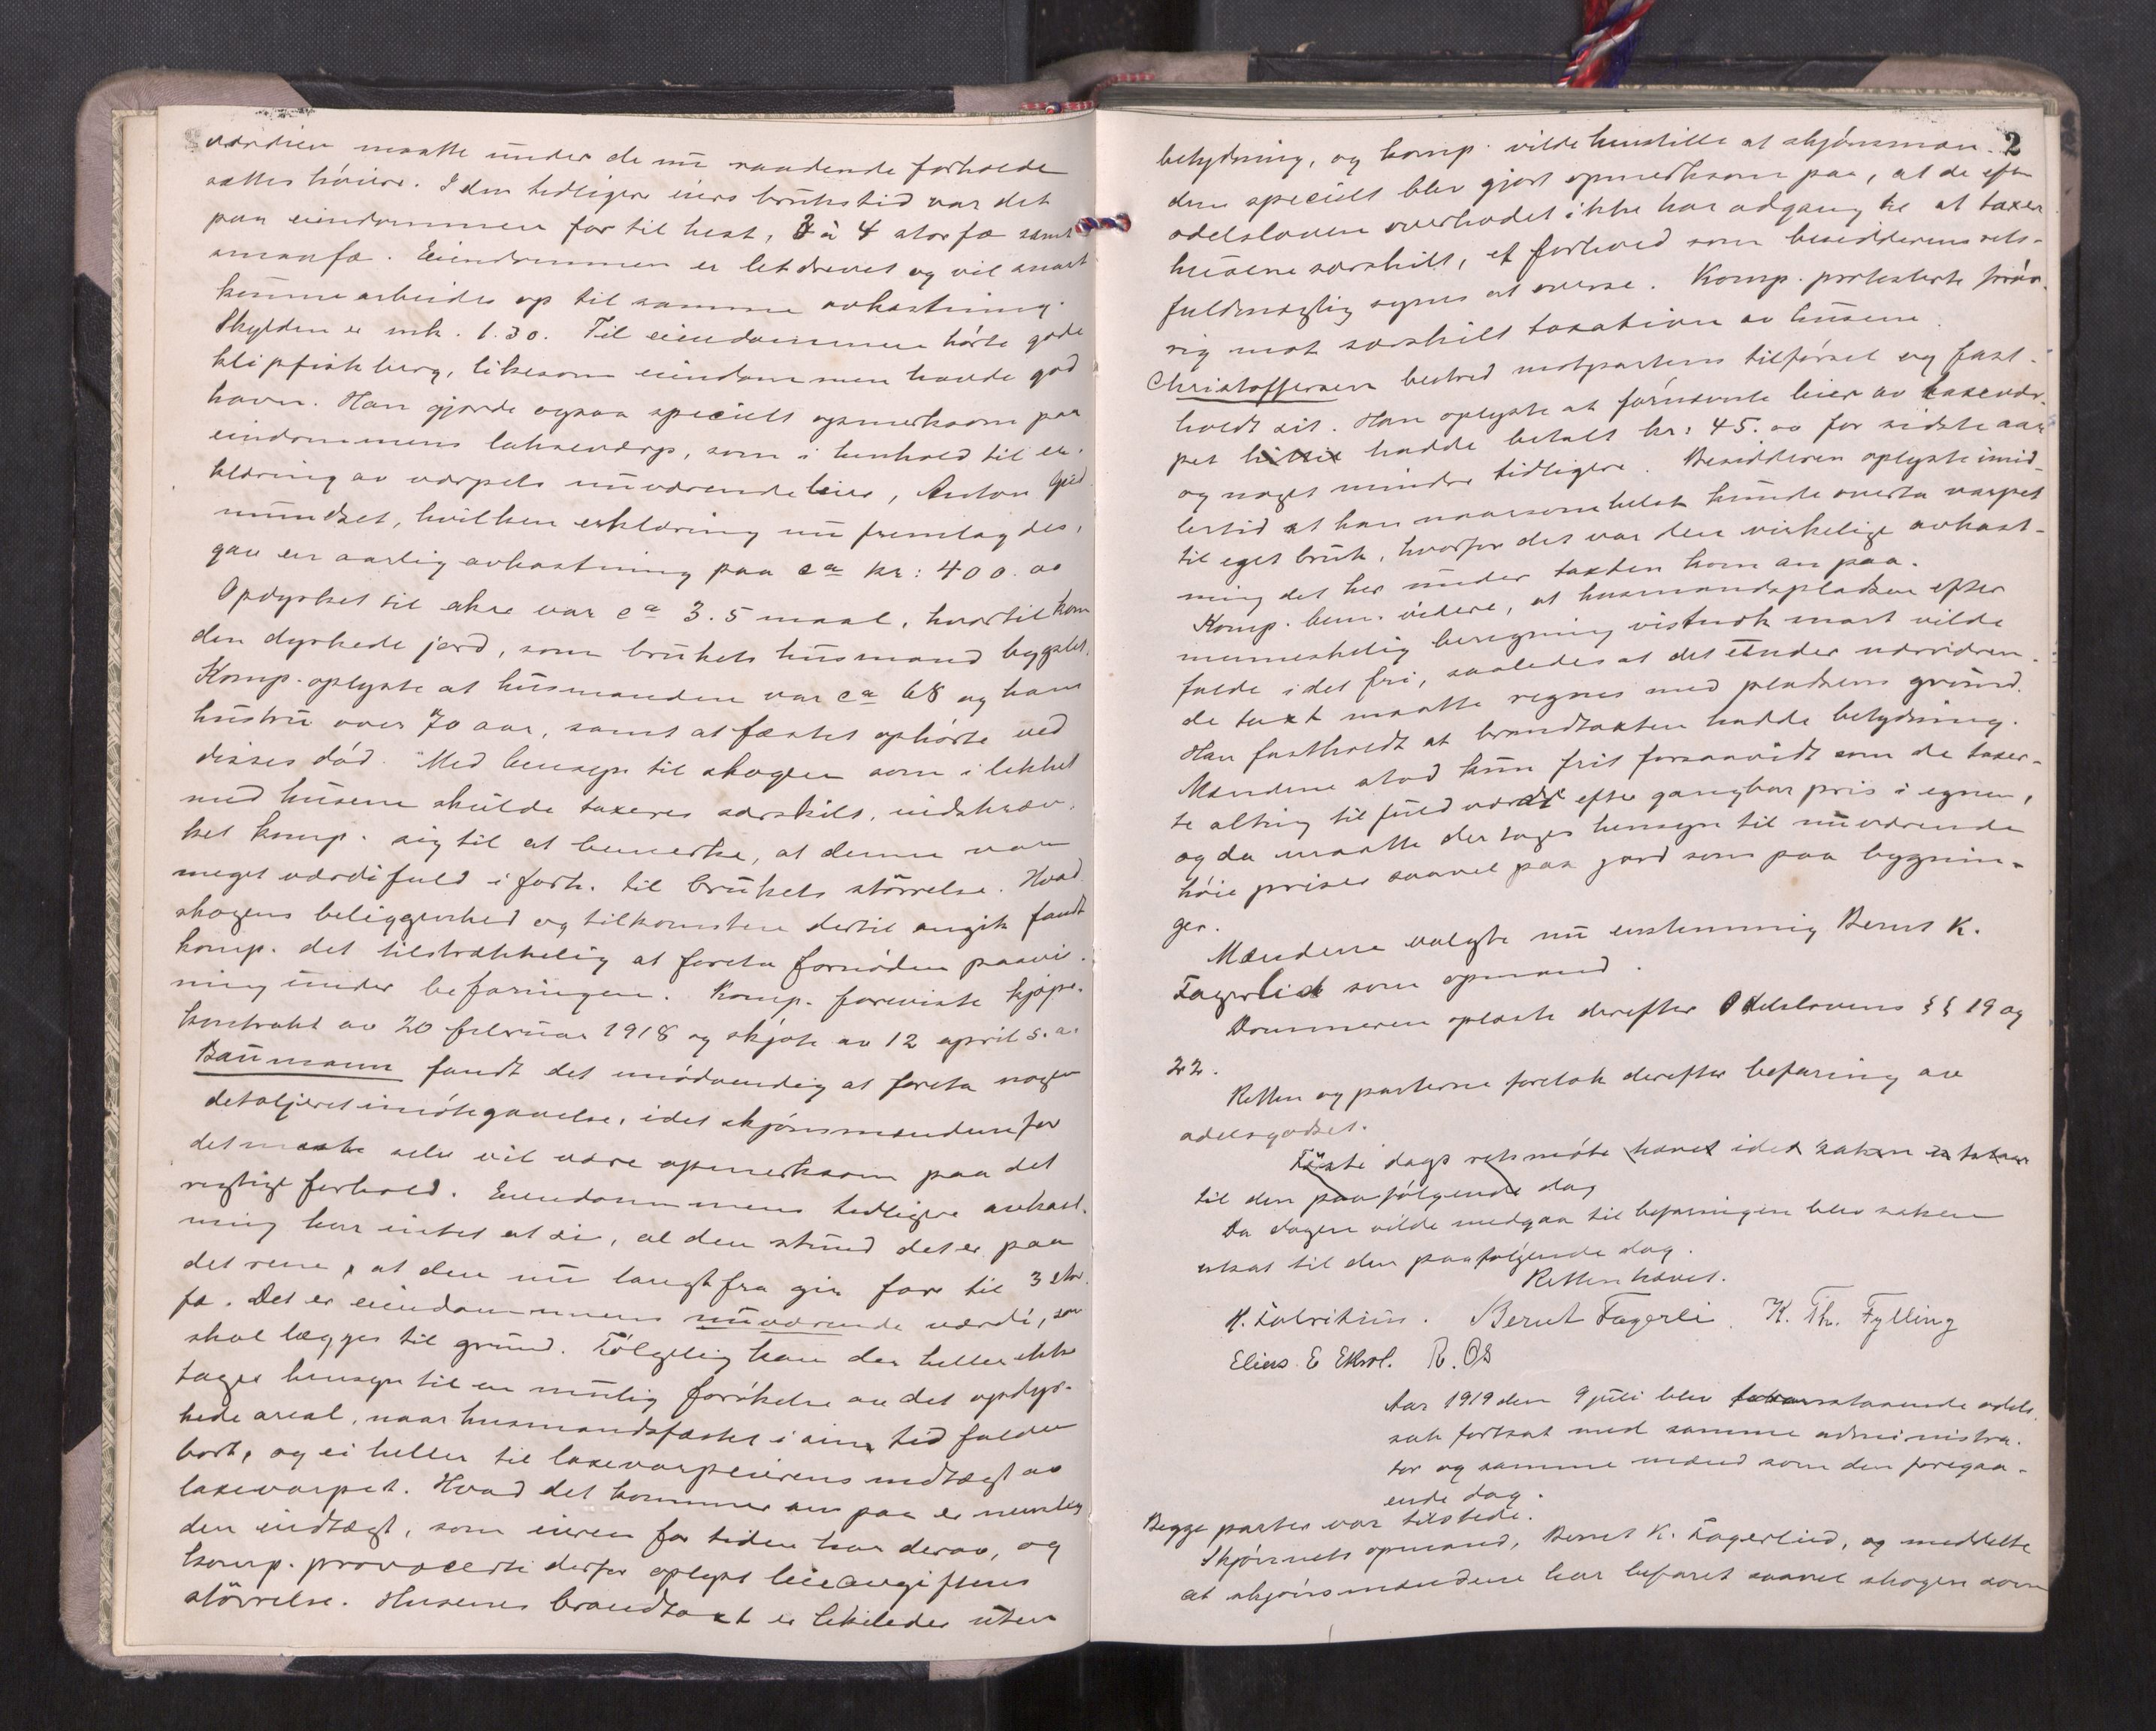 værdien maatte under de nu raadende forholde
sættes höiere. I den tidligere eiers brukstid var det
paa eiendommen for til hest, 3 à 4 storfæ samt
smaafæ. Eiendommen er letdrevet og vil snart
kunne arbeides op til samme avkastning.
Skylden er mk. 1.30. Til eiendommen hörte gode
klipfiskberg, likesom eiendommen havde god
havn. Han gjorde ogsaa specielt opmerksom paa
eiendommens laksevarp, som i henhold til er-
klæring av varpets nuværende leier, Anton Gud
mundset, hvilken erklæring nu fremlagdes,
gav en aarlig avkastning paa ca kr: 400.00
Opdyrket til aker var ca 3.5 maal, hvortil kom
den dyrkede jord, som brukets husmand bygslet.
Komp. oplyste at husmanden var ca 68 og hans
hustru over 70 aar, samt at fæstet ophörte ved
disses död. Med hensyn til skogen som i likhet
med husene skulde taxeres særskilt, indskræn-
ket komp. sig til at bemerke, at denne var
meget værdifuld i forh. til brukets störrelse. Hvad
skogens beliggenhed og tilkomsten dertil angik fandt
komp. det tilstrækkelig at foreta fornöden paavis-
ning under befaringen. Komp. foreviste kjöpe-
kontrakt av 20 februar 1918 og skjöte av 12 april s.a.
Baumann fandt det unödvendig at foreta nogen
detaljeret imötegaaelse, idet skjönsmændene for
det meste selv vil være opmerksom paa det
rigtige forhold. Eiendommens tidligere avkast-
ning har intet at si, al den stund det er paa
det rene, at den nu langt fra gir for til 3 stor-
fæ. Det er eiendommens nuværende værdi, som
skal lægges til grund. Fölgelig kan der heller ikke
tages hensyn til en mulig forökelse av det opdyr-
kede areal, naar husmandsfæstet i sin tid falder
bort, og ei heller til laxevarpleierens indtægt av
laxevarpet. Hvad det kommer an paa er nemlig
den indtægt, som eieren for tiden har derav, og
komp. provocerte derfor oplyst leieavgiftens
störrelse. Husenes brandtaxt er likeledes uten
2
betydning, og komp. vilde henstille at skjönsmæn-
dene specielt blev gjort opmerksom paa, at de efter
odelsloven overhodet ikke har adgang til at taxere
husene særskilt, et forhold som besidderens rets-
fuldmægtig synes at overse. Komp. protesterte foröv-
rig mot særskilt taxation av husene.
Christoffersen bestred motpartens tilförsel og fast-
holdt sit. Han oplyste at förnævnte leier av laxevar-
pet hadde betalt kr: 45.00 for sidste aar
og noget mindre tidligere. Besidderen oplyste imid-
lertid at han naarsomhelst kunde overta varpet
til eget bruk, hvorfor det var den virkelige avkast-
ning det her under taxten kom an paa.
Komp. bem. videre, at husmandspladsen efter
menneskelig beregning vistnok snart vilde
falde i det fri, saaledes at det under nærværen-
de taxt maatte regnes med pladsens grund.
Han fastholdt at brandtaxten hadde betydning.
Mændene stod kun frit forsaavidt som de taxer-
te alting til fuld værdi efter gangbar pris i egnen,
og da maatte der tages hensyn til nuværende
höie priser saavel paa jord som paa bygnin-
ger.
Mændene valgte nu enstemmig Bernt K.
Fagerlid som opmand.
Dommeren oplæste derefter Odelslovens §§ 19 og
22.
Retten og parterne foretok derefter befaring av
odelsgodset.
Förste dags retsmöte hævet idet saken
til den paafölgende dag
Da dagen vilde medgaa til befaringen blev saken
utsat til den paafölgende dag.
Retten hævet.
Bernt Fagerli. K. Th. Fylling
Elias E R. Os
Aar 1919 den 9 juli blev odels-
sak fortsat med samme administra-
tor og samme mænd som den foregaa-
ende dag.
Begge parter var tilstede.
Skjönnets opmand, Bernt K. Fagerlid, og meddelte
at skjönsmændene har befaret saavel skogen som